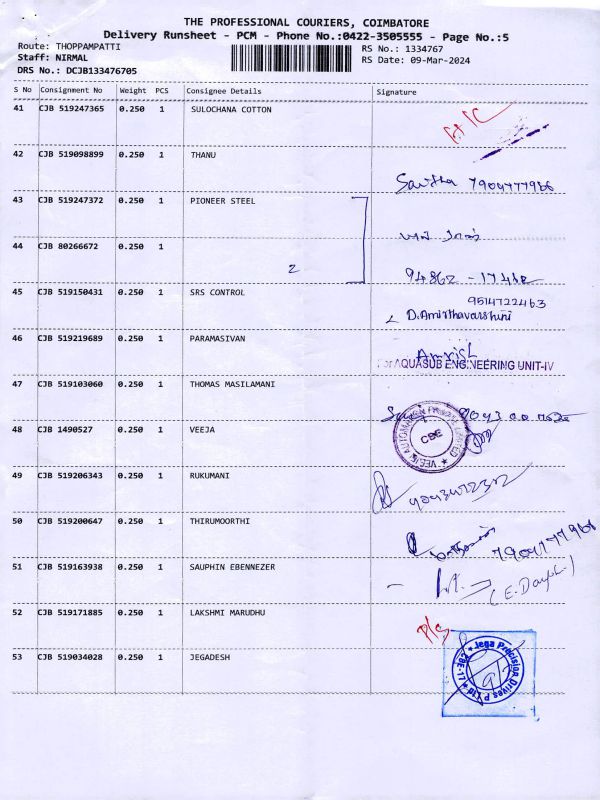 THE PROFESSIONAL COURIERS, COIMBATORE
Delivery Runsheet - PCM - Phone No.:0422-3505555 - Page No.:5
Route: THOPPAMPATTI
Staff: NIRMAL
DRS No.: DCJB133476705
RS No.: 1334767
RS Date: 09-Mar-2024
S No Consignment No Weight PCS Consignee Details Signature
41 CJB 519247365 0.250 1 SULOCHANA COTTON
42 CJB 519098899 0.250 1 THANU
Savitha 7904777966
43 CJB 519247372 0.250 1 PIONEER STEEL
44 CJB 80266672 0.250 1
2
94862 - 17462
45 CJB 519150431 0.250 1 SRS CONTROL
9514722463
D.Amirthavarshini
46 CJB 519219689 0.250 1 PARAMASIVAN
Amrish
For AQUASUB ENGINEERING UNIT-IV
47 CJB 519103060 0.250 1 THOMAS MASILAMANI
48 CJB 1490527 0.250 1 VEEJA
CBE
49 CJB 519206343 0.250 1 RUKUMANI
50 CJB 519200647 0.250 1 THIRUMOORTHI
7904777966
51 CJB 519163938 0.250 1 SAUPHIN EBENNEZER
52 CJB 519171885 0.250 1 LAKSHMI MARUDHU
P/S
53 CJB 519034028 0.250 1 JEGADESH
Jega Precision Drives P Ltd * CBE-17 *